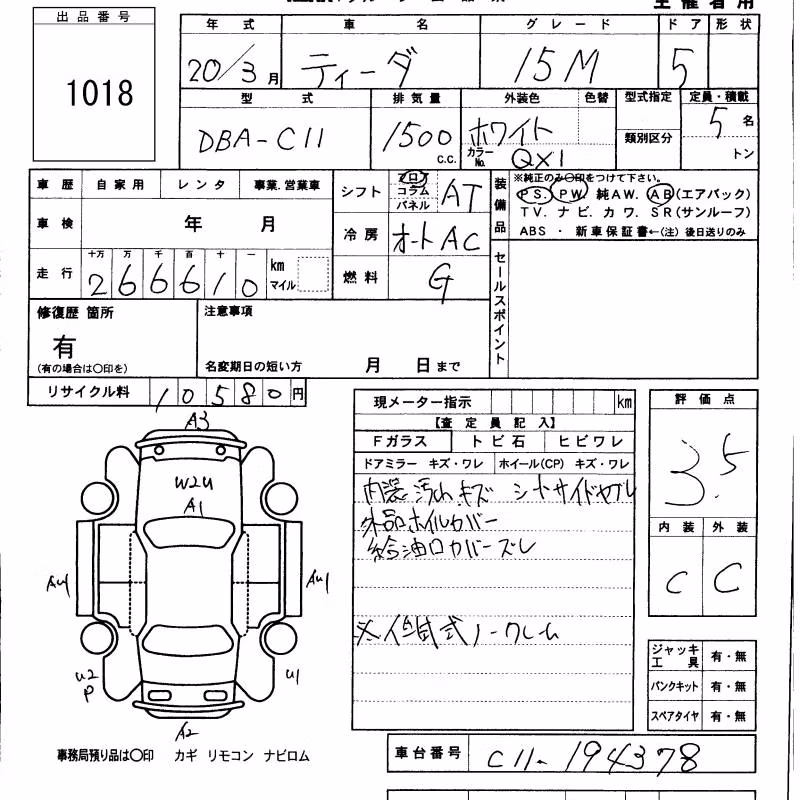 主催者用
出品番号
1018
年式 車名 グレード ドア 形状
20/3月 ティーダ 15M 5
型式 排気量 外装色 色替 型式指定 定員・積載
DBA-C11 1500c.c. ホワイト 5名
カラーNo. QX1 類別区分 トン
車歴 自家用 レンタ 事業.営業車
車検 年 月
走行 十万 万 千 百 十 一 km マイル
266610
シフト フロア コラム パネル AT
冷房 オートAC
燃料 G
装備品
※純正のみ〇印をつけて下さい。
PS. PW. 純AW. AB(エアバック)
TV. ナビ. カワ. SR(サンルーフ)
ABS ・ 新車保証書←(注)後日送りのみ
セールスポイント
修復歴 箇所
有
(有の場合は〇印を)
注意事項
名変期日の短い方 月 日まで
リサイクル料 10580円
A3
W2U
A1
AU1 AU1
U2 U1
P
A2
事務局預り品は〇印 カギ リモコン ナビロム
現メーター指示 km
【査定員記入】
Fガラス トビ石 ヒビワレ
ドアミラー キズ・ワレ ホイール(CP) キズ・ワレ
内装汚れ キズ シートサイドヤブレ
外品ホイルカバー
給油口カバーズレ
式ノークレーム
評価点
3.5
内装 外装
C C
ジャッキ工具 有・無
パンクキット 有・無
スペアタイヤ 有・無
車台番号 C11-194378